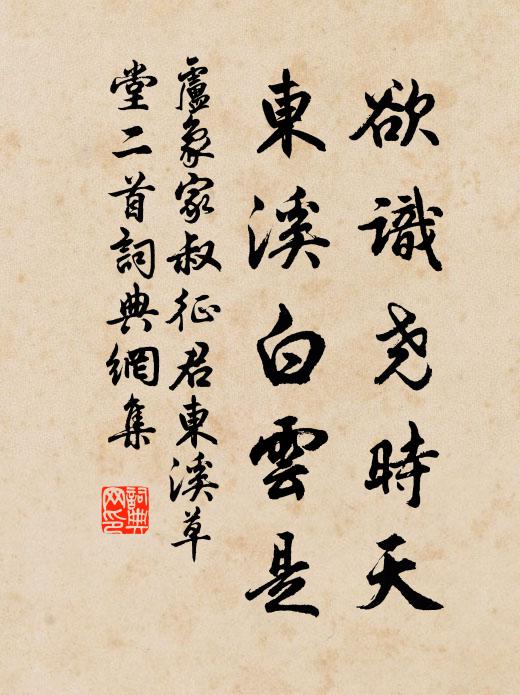 欲識尧時天
東溪白雲是
盧象家叔征君東溪草
堂二首詞典網集
詞典网印